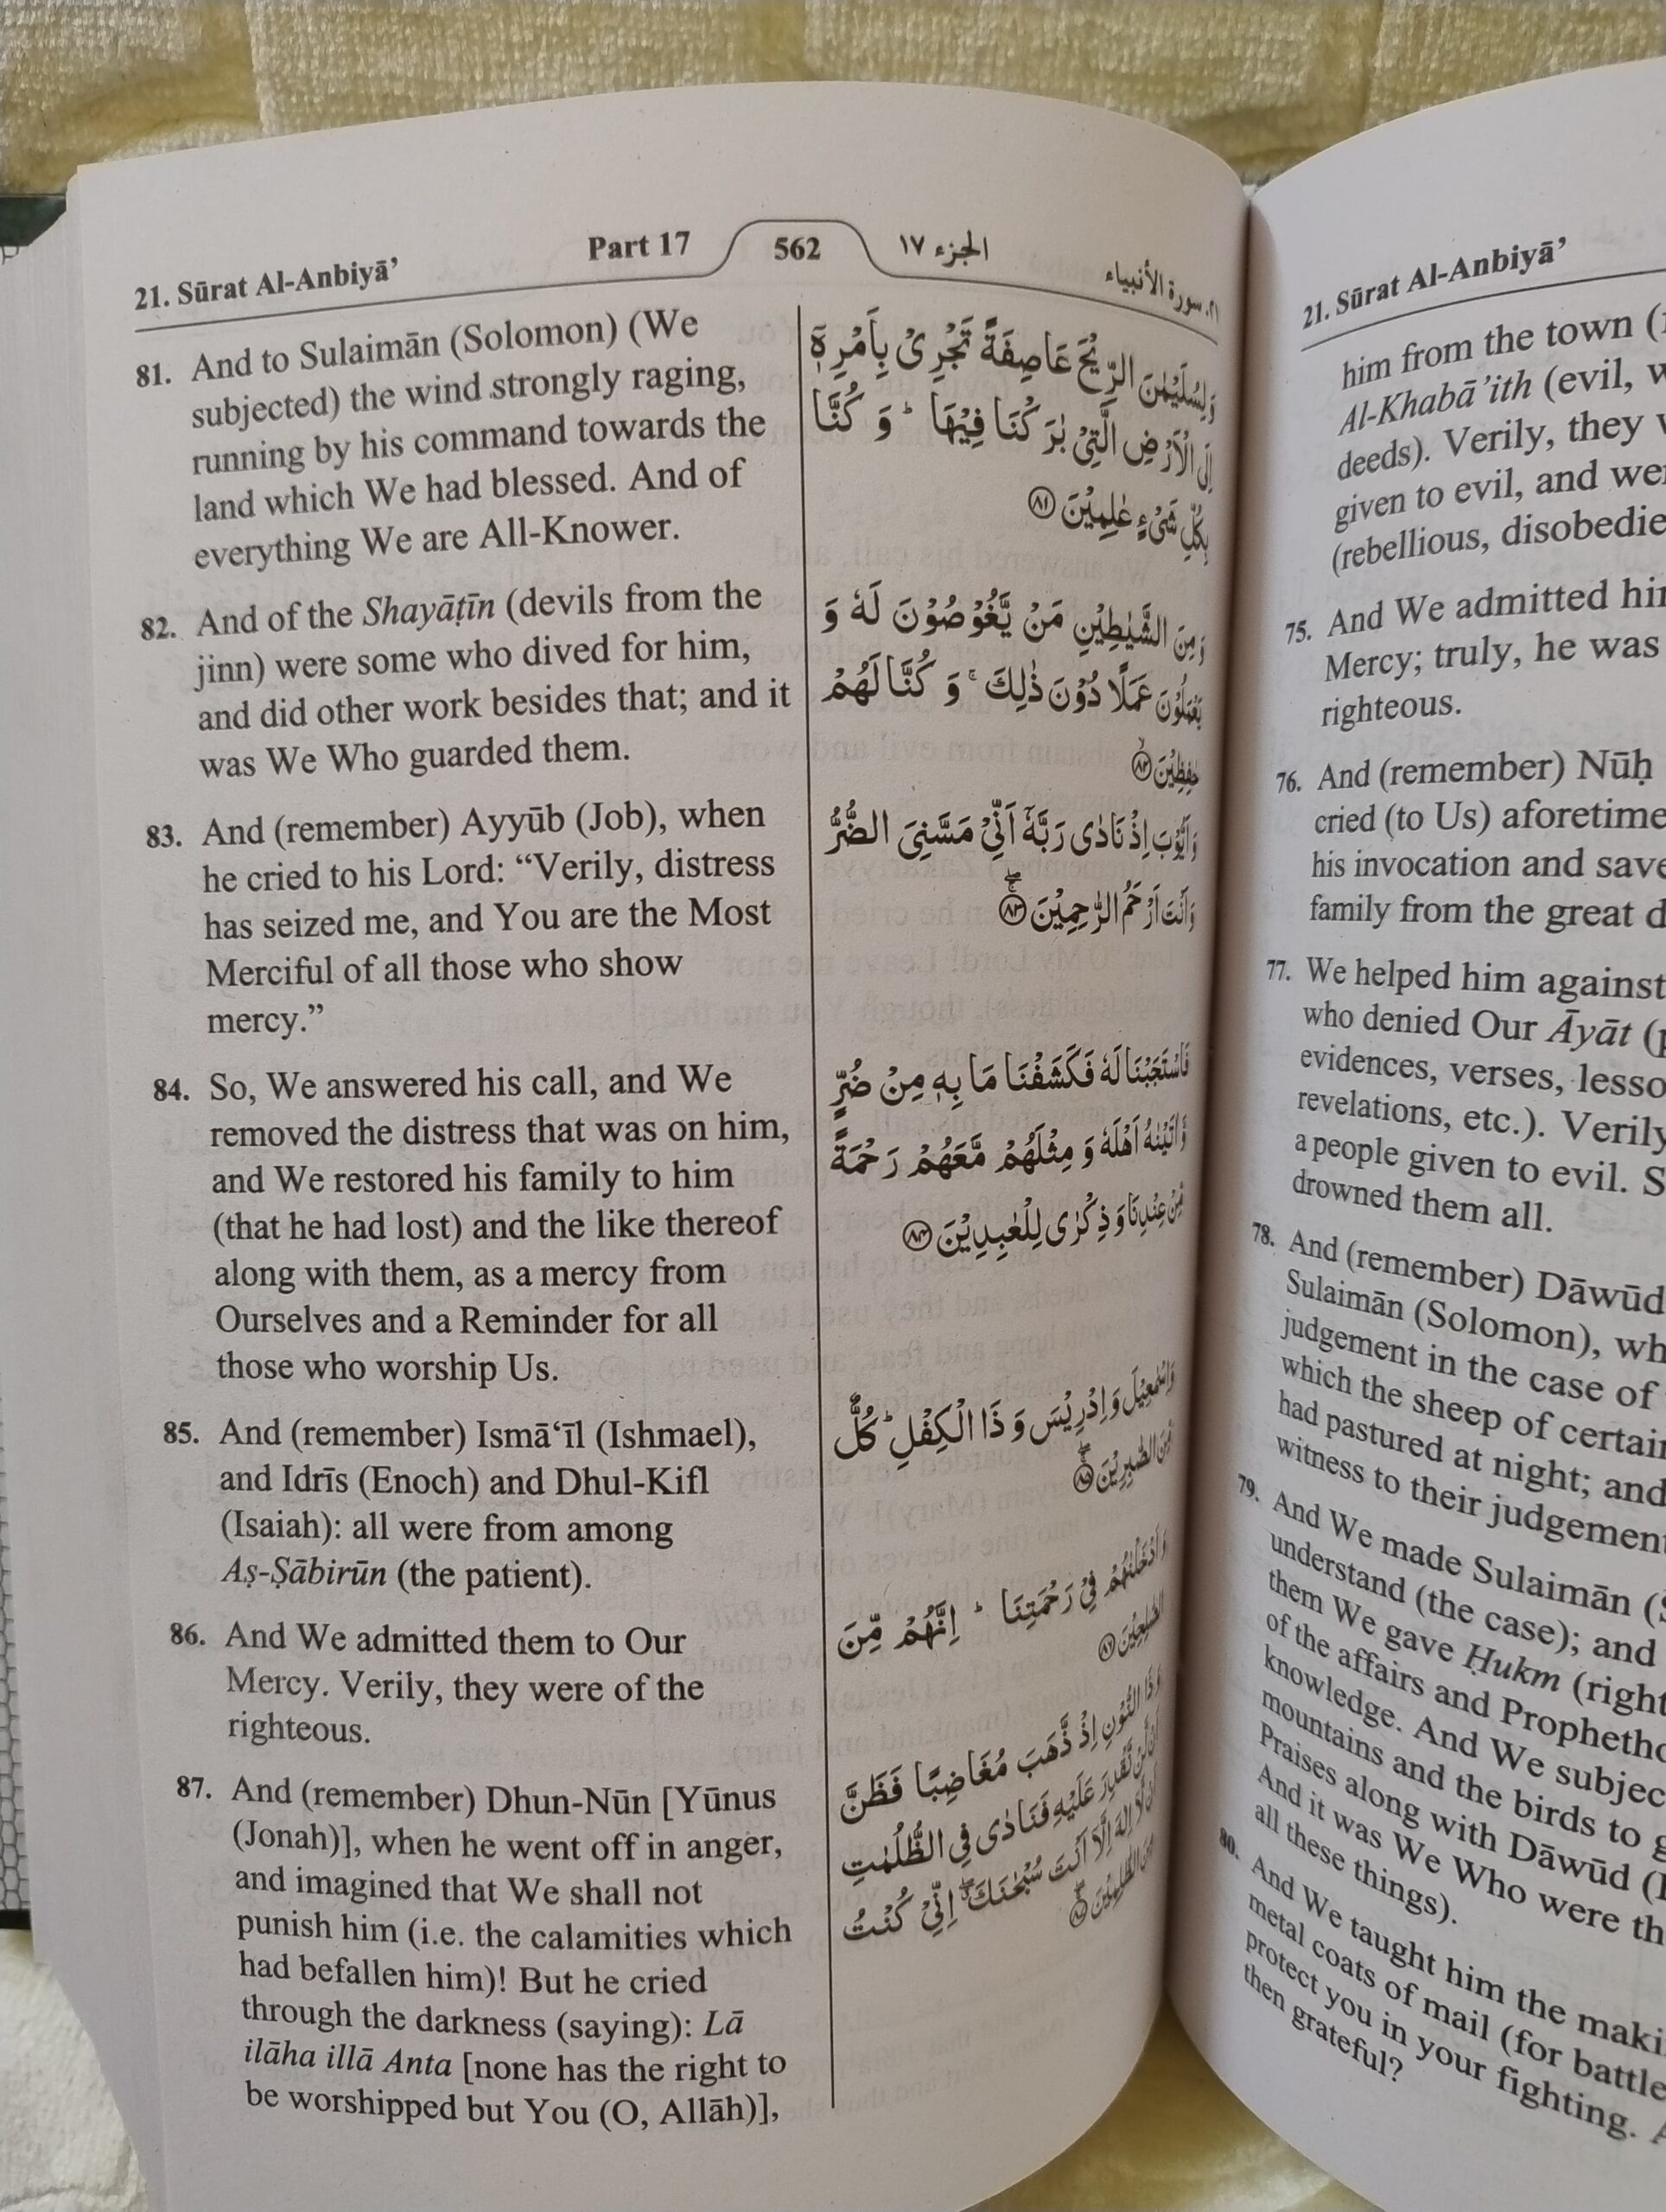 21. Sūrat Al-Anbiyā’
Part 17
562
الجزء ١٧
٢١. سورة الأنبياء
81. And to Sulaimān (Solomon) (We
subjected) the wind strongly raging,
running by his command towards the
land which We had blessed. And of
everything We are All-Knower.
82. And of the Shayāṭīn (devils from the
jinn) were some who dived for him,
and did other work besides that; and it
was We Who guarded them.
83. And (remember) Ayyūb (Job), when
he cried to his Lord: “Verily, distress
has seized me, and You are the Most
Merciful of all those who show
mercy.”
84. So, We answered his call, and We
removed the distress that was on him,
and We restored his family to him
(that he had lost) and the like thereof
along with them, as a mercy from
Ourselves and a Reminder for all
those who worship Us.
85. And (remember) Ismā‘īl (Ishmael),
and Idrīs (Enoch) and Dhul-Kifl
(Isaiah): all were from among
Aṣ-Ṣābirūn (the patient).
86. And We admitted them to Our
Mercy. Verily, they were of the
righteous.
87. And (remember) Dhun-Nūn [Yūnus
(Jonah)], when he went off in anger,
and imagined that We shall not
punish him (i.e. the calamities which
had befallen him)! But he cried
through the darkness (saying): Lā
ilāha illā Anta [none has the right to
be worshipped but You (O, Allāh)],
وَلِسُلَيْمٰنَ الرِّيْحَ عَاصِفَةً تَجْرِىْ بِاَمْرِهٖٓ
اِلَى الْاَرْضِ الَّتِىْ بٰرَكْنَا فِيْهَا ؕ وَ كُنَّا
بِكُلِّ شَىْءٍ عٰلِمِيْنَ ﴿٨١﴾
وَمِنَ الشَّيٰطِيْنِ مَنْ يَّغُوْصُوْنَ لَهٗ وَ
يَعْمَلُوْنَ عَمَلًا دُوْنَ ذٰلِكَ ۚ وَ كُنَّا لَهُمْ
حٰفِظِيْنَ ﴿٨٢﴾
وَاَيُّوْبَ اِذْ نَادٰى رَبَّهٗۤ اَنِّىْ مَسَّنِىَ الضُّرُّ
وَاَنْتَ اَرْحَمُ الرّٰحِمِيْنَ ﴿٨٣﴾
فَاسْتَجَبْنَا لَهٗ فَكَشَفْنَا مَا بِهٖ مِنْ ضُرٍّ
وَّاٰتَيْنٰهُ اَهْلَهٗ وَ مِثْلَهُمْ مَّعَهُمْ رَحْمَةً
مِّنْ عِنْدِنَا وَ ذِكْرٰى لِلْعٰبِدِيْنَ ﴿٨٤﴾
وَاِسْمٰعِيْلَ وَاِدْرِيْسَ وَ ذَا الْكِفْلِ ؕ كُلٌّ
مِّنَ الصّٰبِرِيْنَ ﴿٨٥﴾
وَاَدْخَلْنٰهُمْ فِىْ رَحْمَتِنَا ؕ اِنَّهُمْ مِّنَ
الصّٰلِحِيْنَ ﴿٨٦﴾
وَذَا النُّوْنِ اِذْ ذَّهَبَ مُغَاضِبًا فَظَنَّ
اَنْ لَّنْ نَّقْدِرَ عَلَيْهِ فَنَادٰى فِى الظُّلُمٰتِ
اَنْ لَّاۤ اِلٰهَ اِلَّاۤ اَنْتَ سُبْحٰنَكَ ۖ اِنِّىْ كُنْتُ
مِنَ الظّٰلِمِيْنَ ﴿٨٧﴾
21. Sūrat Al-Anbiyā’
him from the town
Al-Khabā’ith (evil,
deeds). Verily, they
given to evil, and
(rebellious,
75. And We admitted
Mercy; truly, he was
righteous.
76. And (remember) Nūḥ
cried (to Us) aforetime
his invocation and
family from the great
77. We helped him against
who denied Our Āyāt
evidences, verses,
revelations, etc.). Verily
a people given to evil.
drowned them all.
78. And (remember) Dāwūd
Sulaimān (Solomon),
judgement in the case of
which the sheep of
had pastured at night; and
witness to their
79. And We made Sulaimān
understand (the case); and
them We gave Ḥukm
of the affairs and
knowledge. And We
mountains and the birds to
Praises along with Dāwūd
And it was We Who were
all these things).
80. And We taught him the
metal coats of mail (for
protect you in your fighting.
then grateful?